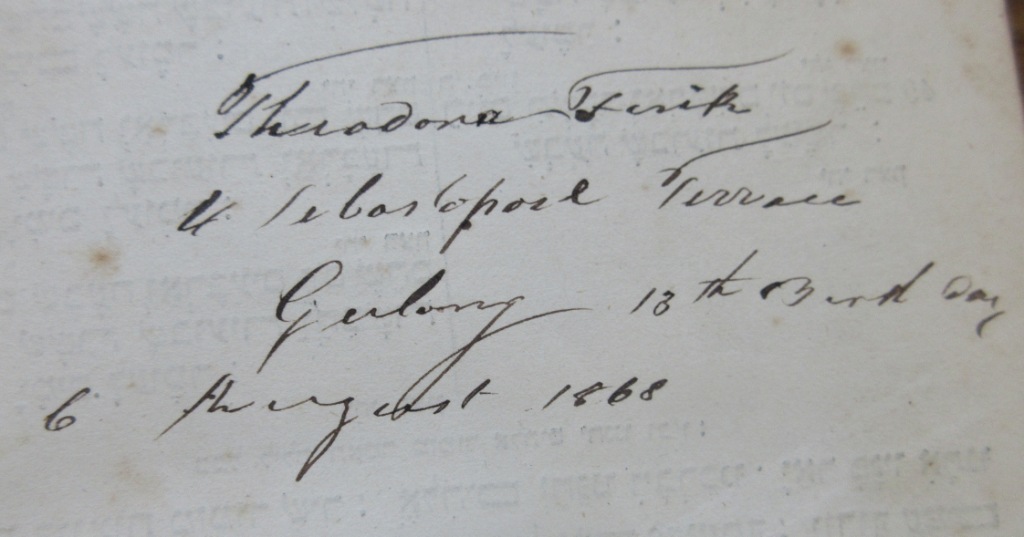 Theodore Fink
4 Sebastopol Terrace
Geelong 13th Birth day
6 August 1868